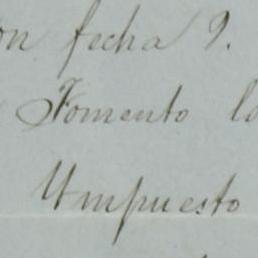 on fecha 9.
Fomento lo
Ympuesto